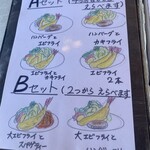 Aセット(4つからえらべます
ハンバーグと
エビフライ
ハンバーグと
カキフライ
エビフライと
カキフライ
エビフライ
2本
Bセット(2つからえらべます
大エビフライと
スパゲティー
大エビフライと